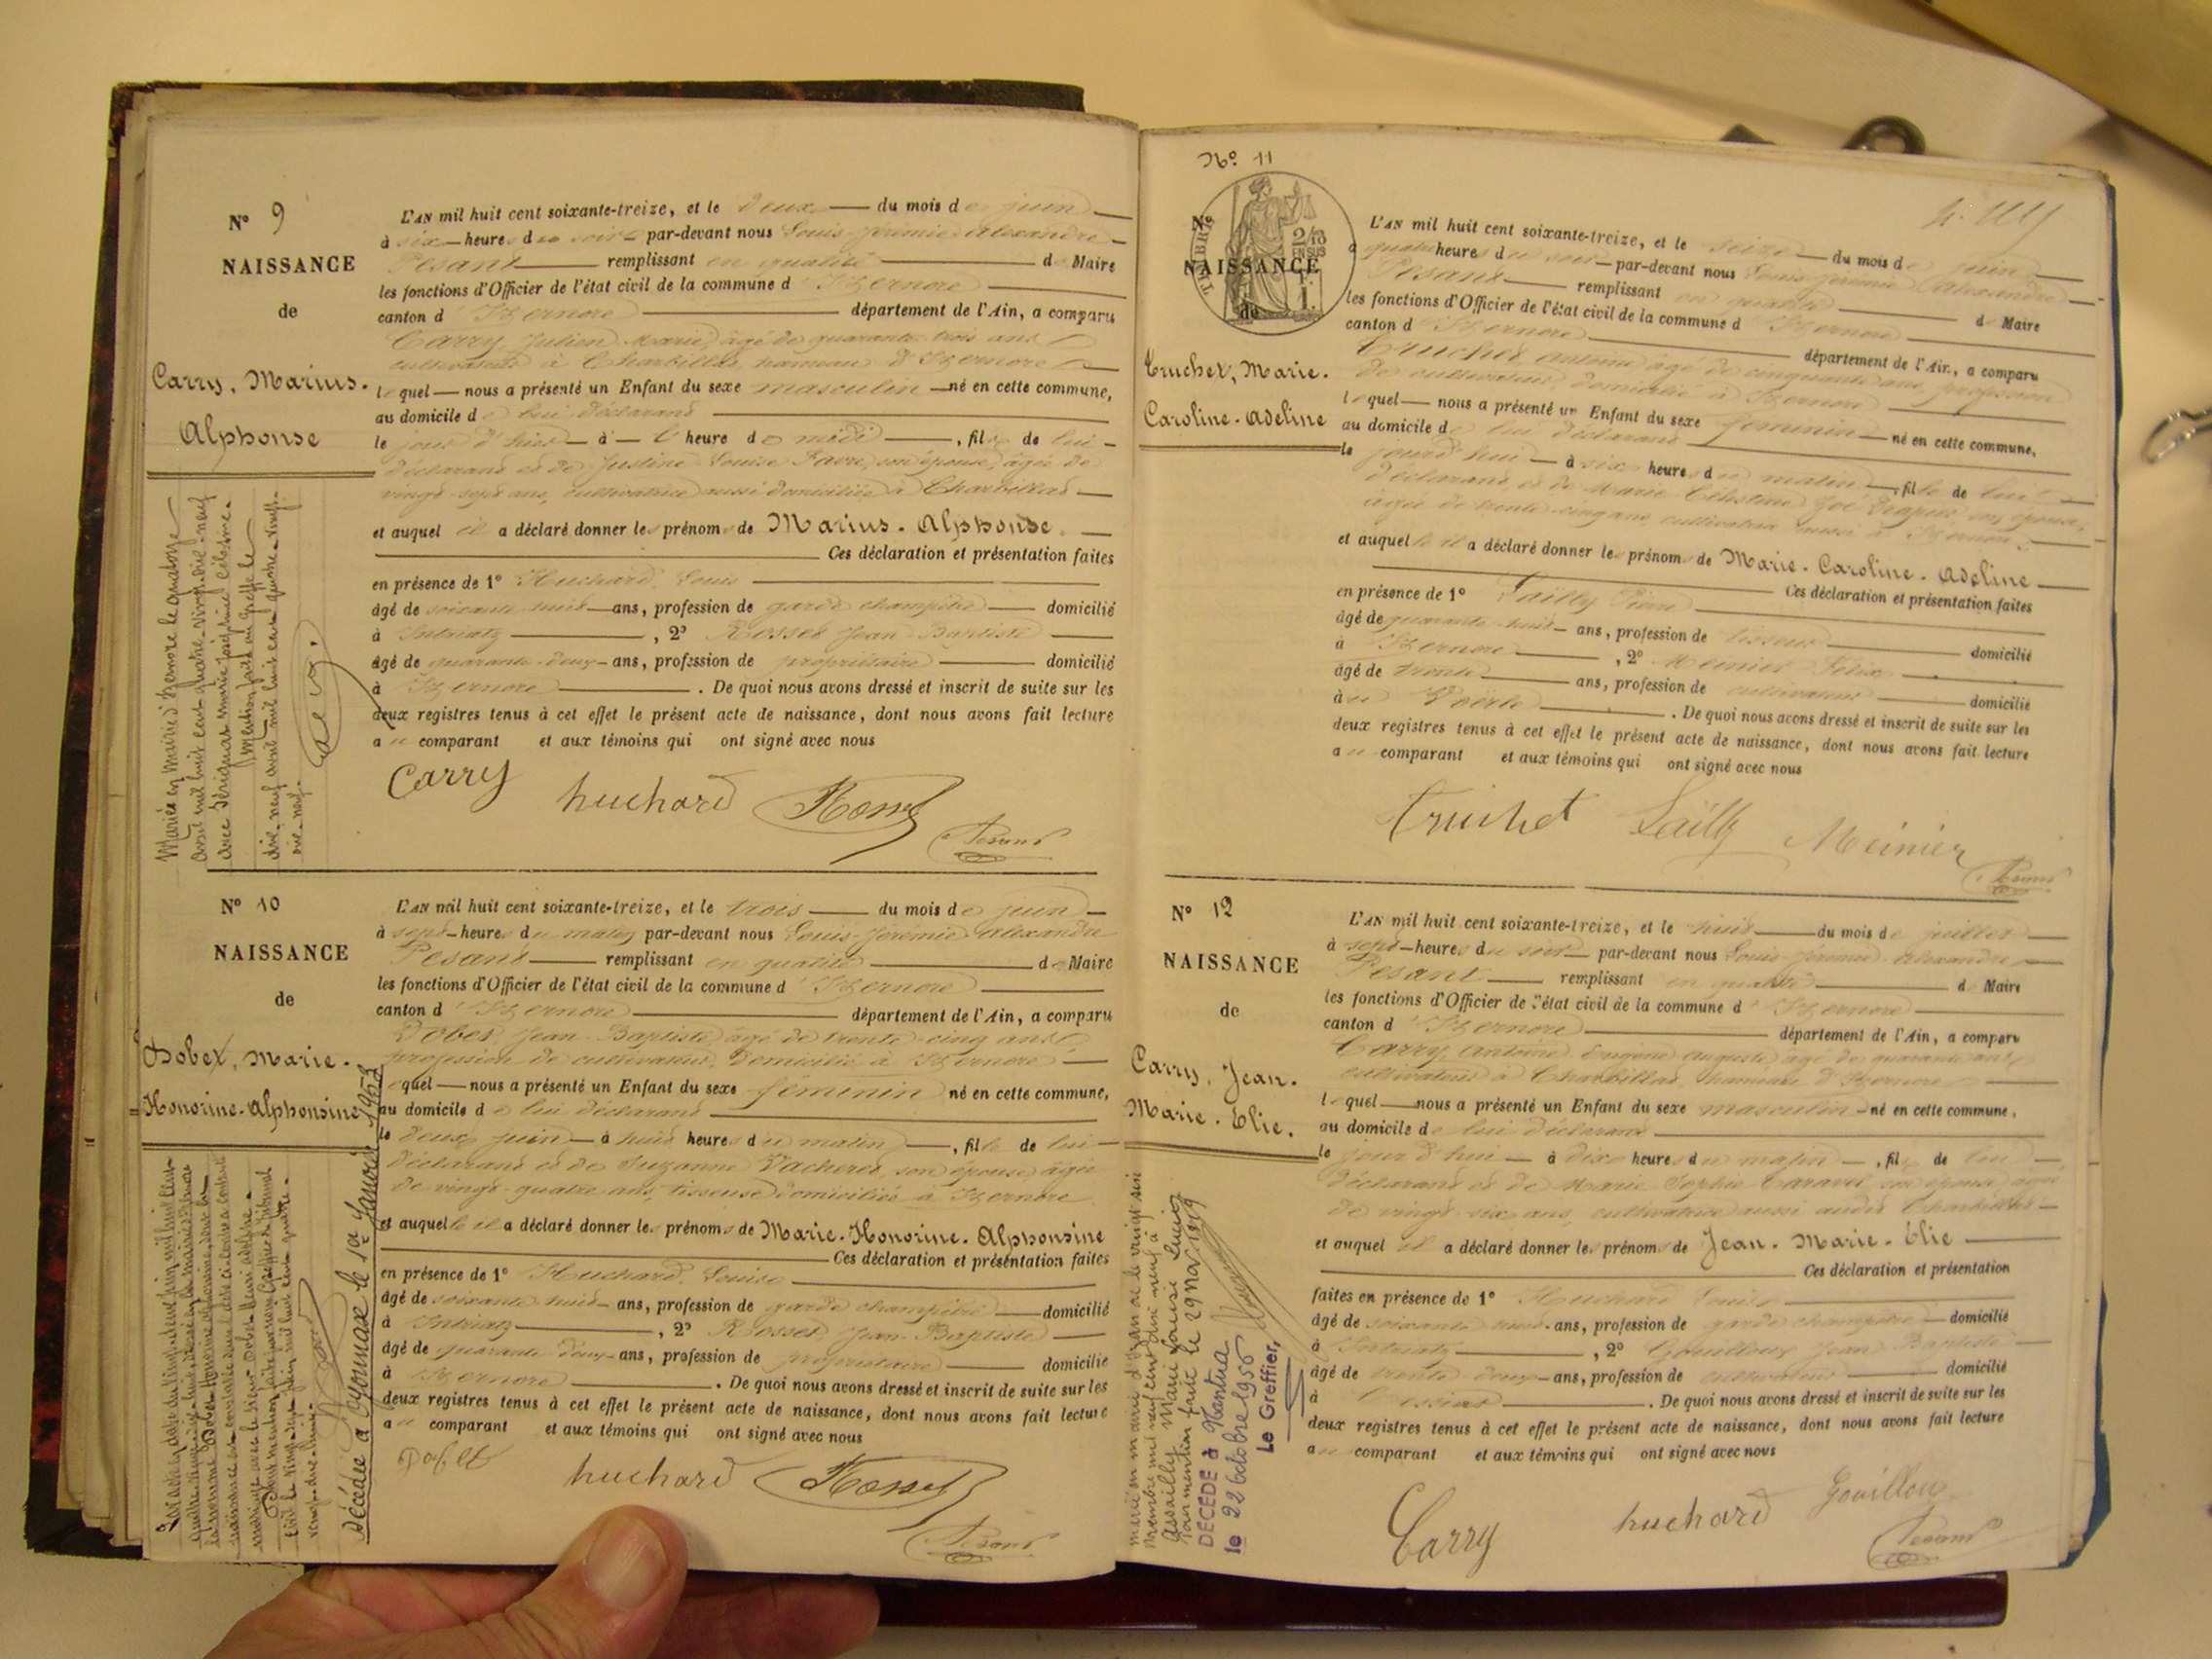 N° 9
NAISSANCE
de
Carry, Marius.
Alphonse
L'AN mil huit cent soixante-treize, et le deux du mois de juin
à six heures du soir par-devant nous Louis Jérémie Alexandre
Pesant remplissant en qualité de Maire
les fonctions d'Officier de l'état civil de la commune d'Izernore
canton d'Izernore département de l'Ain, a comparu
Carry Julien Marie, âgé de quarante trois ans
cultivateur à Charbillat hameau d'Izernore
lequel nous a présenté un Enfant du sexe masculin né en cette commune,
au domicile de lui déclarant
le jour d'hier à l'heure de midi, fils de lui
déclarant et de Justine Louise Favre, son épouse, âgée de
vingt-sept ans, cultivatrice aussi domiciliée à Charbillat
et auquel il a déclaré donner les prénoms de Marius-Alphonse.
Ces déclaration et présentation faites
en présence de 1° Huchard Louis
âgé de soixante huit ans, profession de garde champêtre domicilié
à Intriatz, 2° Rosset Jean Baptiste
âgé de quarante-deux ans, profession de propriétaire domicilié
à Izernore. De quoi nous avons dressé et inscrit de suite sur les
deux registres tenus à cet effet le présent acte de naissance, dont nous avons fait lecture
au comparant et aux témoins qui ont signé avec nous
Carry huchard Rosset
Pesant
Mariés en Mairie d'Izernore le quatorze
avril mil huit cent quatre-vingt-dix-neuf
avec Marie Joséphine
Mention faite au greffe le
dix-neuf avril mil huit cent quatre-vingt-
dix-neuf.
N° 10
NAISSANCE
de
Dobet, Marie.
Honorine-Alphonsine
L'AN mil huit cent soixante-treize, et le trois du mois de juin
à sept heures du matin par-devant nous Louis-Jérémie Alexandre
Pesant remplissant en qualité de Maire
les fonctions d'Officier de l'état civil de la commune d'Izernore
canton d'Izernore département de l'Ain, a comparu
Dobet Jean Baptiste âgé de trente-cinq ans
profession de cultivateur, domicilié à Izernore
lequel nous a présenté un Enfant du sexe féminin né en cette commune,
au domicile de lui déclarant
le deux juin à huit heures du matin, fille de lui
déclarant et de Suzanne Vacheret, son épouse, âgée
de vingt-quatre ans, tisseuse domiciliée à Izernore
et auquel il a déclaré donner les prénoms de Marie-Honorine-Alphonsine
Ces déclaration et présentation faites
en présence de 1° Huchard Louis
âgé de soixante huit ans, profession de garde champêtre domicilié
à Intriatz, 2° Rosset Jean-Baptiste
âgé de quarante-deux ans, profession de propriétaire domicilié
à Izernore. De quoi nous avons dressé et inscrit de suite sur les
deux registres tenus à cet effet le présent acte de naissance, dont nous avons fait lecture
au comparant et aux témoins qui ont signé avec nous
Dobet huchard Rosset
Pesant
Décédée à Oyonnax le 1er Janvier 1953
N° 11
N°
TIMBRE
2/10
EN SUS
1 F.
NAISSANCE
de
Truchet, Marie.
Caroline-Adeline
L'AN mil huit cent soixante-treize, et le seize du mois de juin
à quatre heures du soir par-devant nous Louis Jérémie Alexandre
Pesant remplissant en qualité de Maire
les fonctions d'Officier de l'état civil de la commune d'Izernore
canton d'Izernore département de l'Ain, a comparu
Truchet Antoine âgé de cinquante ans, profession
de cultivateur, domicilié à Izernore
lequel nous a présenté un Enfant du sexe féminin né en cette commune,
au domicile de lui déclarant
le jourd'hui à six heures du matin, fille de lui
déclarant et de Marie Célestine Zoé son épouse,
âgée de trente-cinq ans, cultivatrice aussi à Izernore
et auquel il a déclaré donner les prénoms de Marie-Caroline-Adeline
Ces déclaration et présentation faites
en présence de 1° Lailly Pierre
âgé de quarante huit ans, profession de tisseur domicilié
à Izernore, 2° Meinier Félix
âgé de trente ans, profession de cultivateur domicilié
à. De quoi nous avons dressé et inscrit de suite sur les
deux registres tenus à cet effet le présent acte de naissance, dont nous avons fait lecture
au comparant et aux témoins qui ont signé avec nous
Truchet Lailly Meinier
Pesant
N° 12
NAISSANCE
de
Carry, Jean.
Marie-Elie.
L'AN mil huit cent soixante-treize, et le huit du mois de juillet
à sept heures du soir par-devant nous Louis Jérémie Alexandre
Pesant remplissant en qualité de Maire
les fonctions d'Officier de l'état civil de la commune d'Izernore
canton d'Izernore département de l'Ain, a comparu
Carry Antoine Eugène Auguste âgé de quarante ans
cultivateur à Charbillat, hameau d'Izernore
lequel nous a présenté un Enfant du sexe masculin né en cette commune,
au domicile de lui déclarant
le jour d'hui à dix heures du matin, fils de lui
déclarant et de Marie Sophie son épouse âgée
de vingt-six ans, cultivatrice aussi audit Charbillat
et auquel il a déclaré donner les prénoms de Jean-Marie-Elie
Ces déclaration et présentation
faites en présence de 1° Huchard Louis
âgé de soixante huit ans, profession de garde champêtre domicilié
à Intriatz, 2° Gouilloux Jean Baptiste
âgé de trente deux ans, profession de cultivateur domicilié
à. De quoi nous avons dressé et inscrit de suite sur les
deux registres tenus à cet effet le présent acte de naissance, dont nous avons fait lecture
au comparant et aux témoins qui ont signé avec nous
Carry huchard Gouilloux
Pesant
Marie Louise Lucie
Pour mention faite le 29 Mai 1919
DÉCÉDÉ à Nantua
le 22 octobre 1956
Le Greffier,